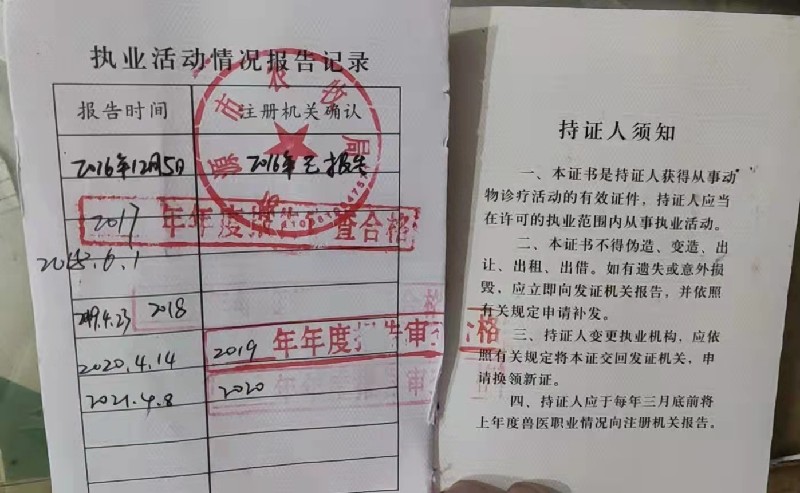 执业活动情况报告记录
报告时间 注册机关确认
市农 局
2016年12月5日 2016年已报告
2017 年年度报 查合格
2018.6.1
合格
2019.4.23 2018
2020.4.14 2019 年年度报告审 合格
2021.4.8 2020 年年度报告审
持证人须知
一、本证书是持证人获得从事动
物诊疗活动的有效证件，持证人应当
在许可的执业范围内从事执业活动。
二、本证书不得伪造、变造、出
让、出租、出借。如有遗失或意外损
毁、应立即向发证机关报告，并依照
有关规定申请补发。
三、持证人变更执业机构，应依
照有关规定将本证交回发证机关，申
请换领新证。
四、持证人应于每年三月底前将
上年度兽医职业情况向注册机关报告。